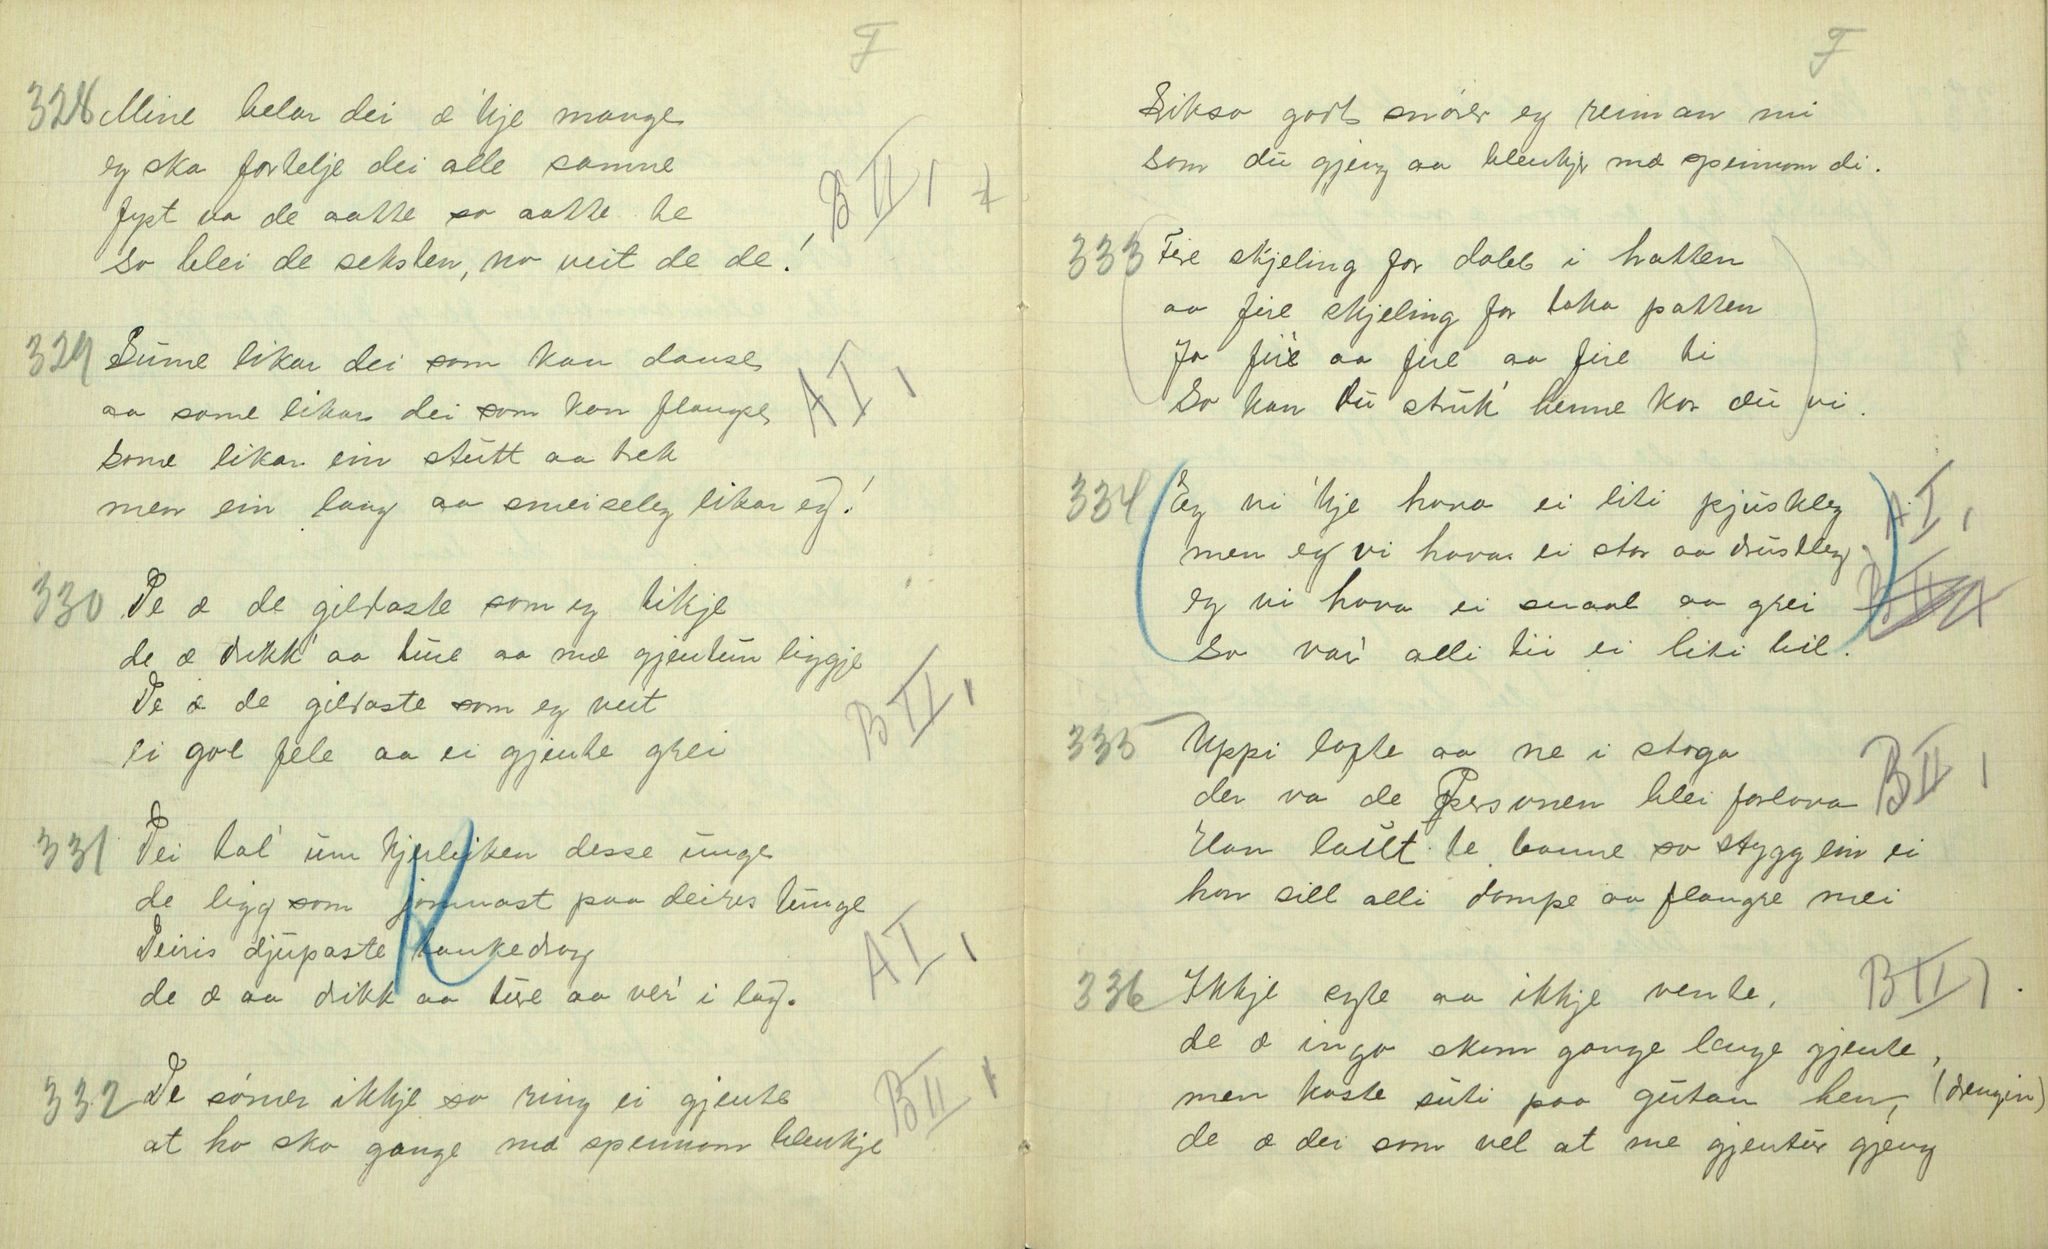 F
328 Mine belar dei æ 'kje mange
eg ska fortelje dei alle samne
fyst va de aatte so aatte te
so blei de seksten, no veit de de!
B II 1
329 Sume likar dei som kan danse
aa some likar dei som kan flangse
some likar ein stutt aa trek
men ein lang aa smeiseleg likar eg!
A I,
330 De æ de gildaste som eg tikje
de æ drikk' aa ture aa mæ gjentun liggje
De æ de gildaste som eg veit
ei go fele aa ei gjente grei
B II,
331 Dei tal' um kjærleiken desse unge
de ligg som jamnast paa deires tunge
Deiris djupaste tankedrag
de æ aa drikk aa ture aa ver' i lag.
K
A I,
332 De sømer ikkje so ring ei gjente
at ho ska gange mæ spennom blenkje
B II 1
F
Likso godt snører eg reiman mi
som du gjeng aa blenkje mæ spennom di.
333 Fire skjeling for dalt i hatten
aa fire skjeling for taka patten
Ja fire aa fire aa fire ti
So kan du struk' henne kor du vi.
334 Eg vi 'kje hava ei liti pjuskleg
men eg vi hava ei stor aa drustleg
eg vi hava ei snaal aa grei
so var' alli tii ei liti hil.
A I,
B II
335 Uppi lofte aa ne i stoga
der va de Personen blei forlova
Han laut te banne so stygg ein ei
han sill alli dampe aa flangre mei
B II 1
336 Ikkje syte aa ikkje vente,
de æ inga skam gange lange gjente,
men kaste suti paa gutan hen, (drengin)
de æ dei som vel at me gjentur gjeng
B II 1